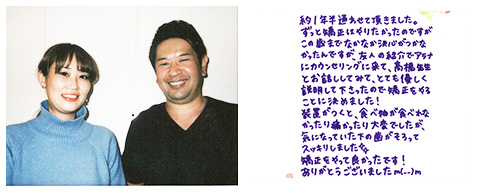 約1年半通わせて頂きました。
ずっと矯正はやりたかったのですが
この歳までなかなか決心がつかな
かったんですが、友人の紹介でアリナ
にカウンセリングに来て、高橋先生
とお話ししてみて、とても優しく
説明して下さったので矯正をやる
ことに決めました！
装置がつくと、食べ物が食べれな
かったり痛かったり大変でしたが、
気になっていた下の歯がそろって
スッキリしました
矯正をやって良かったです！
ありがとうございましたm(--)m